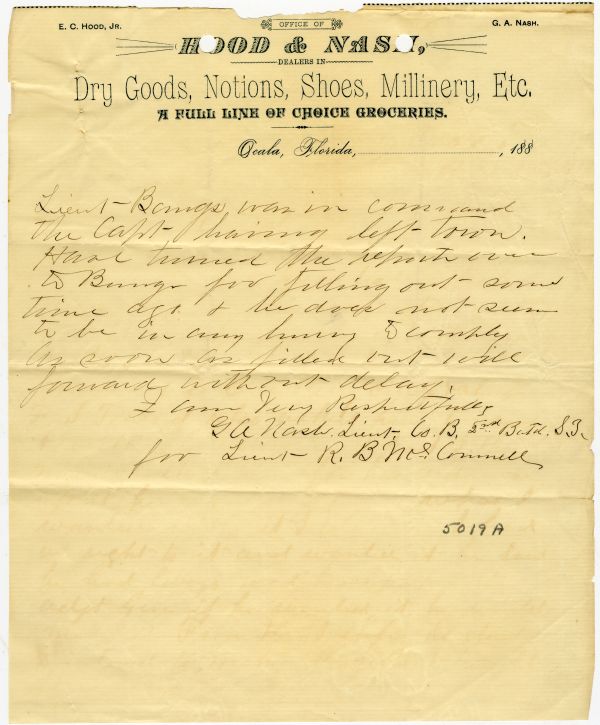 E. C. HOOD, JR.
OFFICE OF
G. A. NASH.
HOOD & NASH,
DEALERS IN
Dry Goods, Notions, Shoes, Millinery, Etc.
A FULL LINE OF CHOICE GROCERIES.
Ocala, Florida, , 188
Lieut Bangs was in command
the Capt having left town.
Have turned the reports over
to Bangs for filling out some
time ago & he does not seem
to be in any hurry to comply
As soon as filled out will
forward without delay.
I am Very Respectfully
G A Nash Lieut. Co. B. Batn. S.T.
for Lieut R. B McConnell
5019A